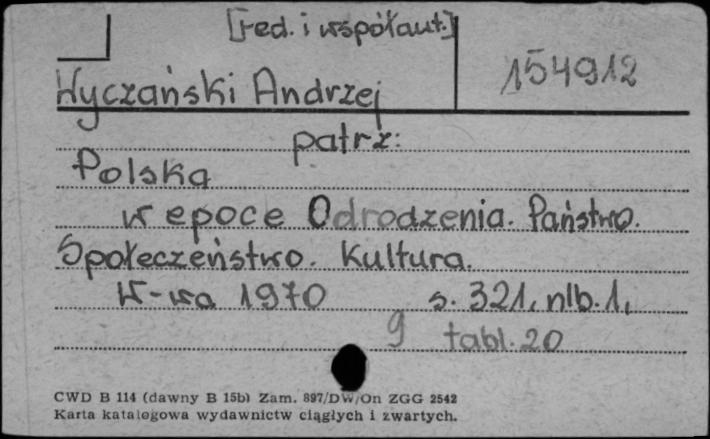 [red. i współaut.]
154912
Wyczański Andrzej
patrz:
Polska
w epoce Odrodzenia. Państwo.
Społeczeństwo. Kultura.
W-wa 1970 s. 321, nlb. 1,
9 tabl. 20
CWD B 114 (dawny B 15b) Zam. 897/DW/On ZGG 2542
Karta katalogowa wydawnictw ciągłych i zwartych.